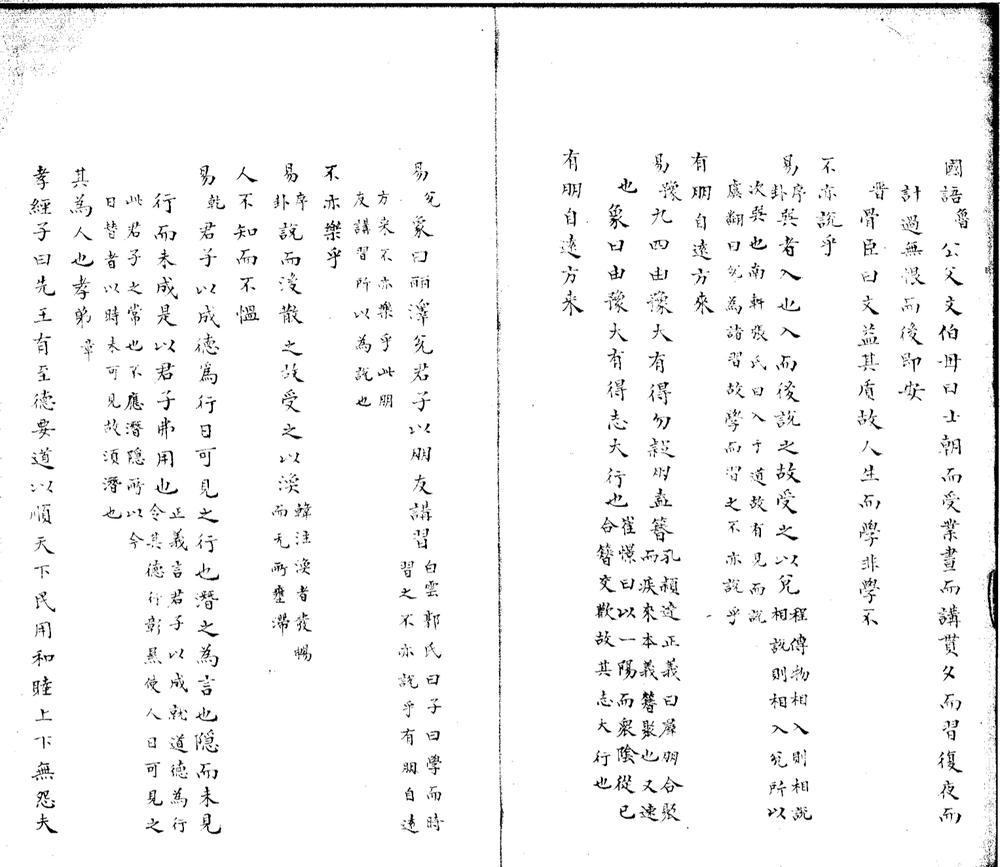 國語魯公父文伯母曰士朝而受業晝而講貫夕而習復夜而
計過無憾而後即安
晉胥臣曰文益其质故人生而學非學不
不亦說乎
易序卦巽者入也入而後說之故受之以兌程傳物相入則相說相說則相入兌所以
次巽也南軒張氏曰入于道故有見而說
虞翻曰兌為講習故學而習之不亦說乎
有朋自遠方來
易豫九四由豫大有得勿疑朋盍簪孔穎達正義曰羣朋合聚而疾來本義簪聚也又速
也象曰由豫大有得志大行也崔憬曰以一陽而衆陰從己合簪交歡故其志大行也
有朋自遠方來
易兌象曰麗澤兌君子以朋友講習白雲郭氏曰子曰學而時習之不亦說乎有朋自遠
方來不亦樂乎此朋
友講習所以為說也
不亦樂乎
易序卦說而後散之故受之以渙韓注渙者發暢而无所壅滯
人不知而不慍
易乾君子以成德為行日可見之行也潛之為言也隱而未見
行而未成是以君子弗用也正義言君子以成就道德為行令其德行彰㬎使人日可見之
此君子之常也不應潛隱所以今
日替者以時未可見故須潛也
其為人也孝弟章
孝經子曰先王有至德要道以順天下民用和睦上下無怨夫